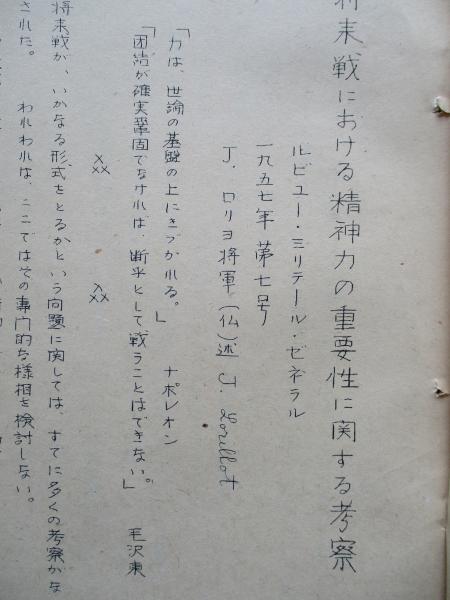 将来戦における精神力の重要性に関する考察
ルビュー・ミリテール・ゼネラル
一九五七年第七号
J. ロリヨ将軍(仏)述 J. Lorillot
「力は、世論の基盤の上にきづかれる。」 ナポレオン
「団結が確実鞏固でなければ、断乎として戦うことはできない。」 毛沢東
××× ×××
将来戦が、いかなる形式をとるかという問題に関しては、すでに多くの考察がな
された。 われわれは、ここではその専門的な様相を検討しない。